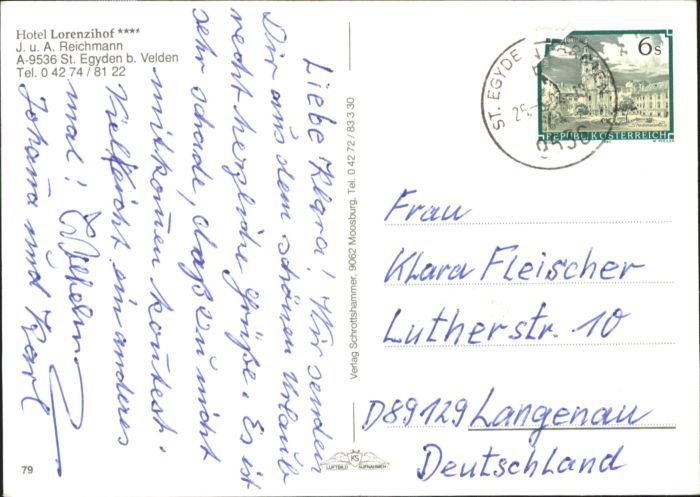 Hotel Lorenzihof ****
J. u. A. Reichmann
A-9536 St. Egyden b. Velden
Tel. 0 42 74 / 81 22
Liebe Klara! Wir senden
Dir aus dem schönen Urlaub
recht herzliche Grüße. Es ist
sehr schade, daß Du nicht
mitkommen konntest.
Vielleicht ein anderes
mal! Wilhelm
Johanna und Karl
79
Verlag Schrottshammer, 9062 Moosburg, Tel. 0 42 72 / 83 3 30
KS
LUFTBILD AUFNAHMEN
6 s
REPUBLIK ÖSTERREICH
ST. EGYDEN
Frau
Klara Fleischer
Lutherstr. 10
D89129 Langenau
Deutschland